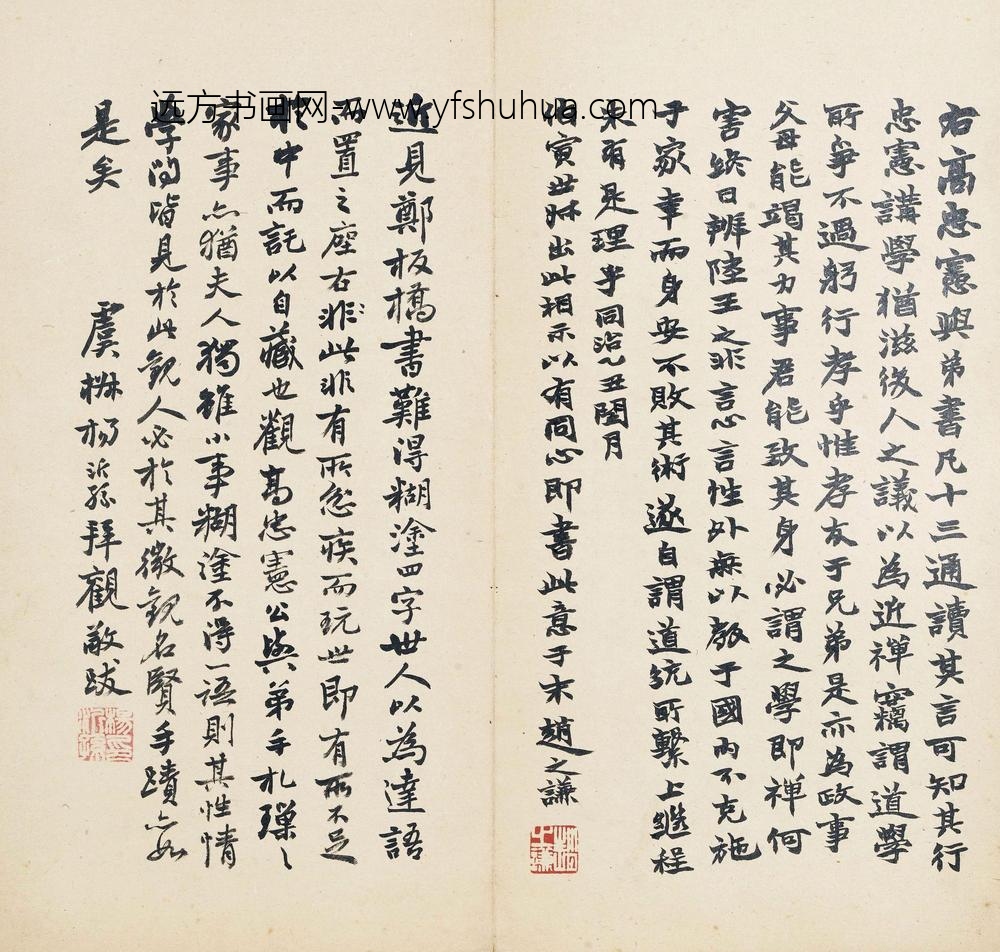 右高忠憲與弟書凡十三通讀其言可知其行
忠憲講學猶滋後人之議以為近禪竊謂道學
所爭不過躬行孝乎惟孝友于兄弟是亦為政事
父母能竭其力事君能致其身必謂之學即禪何
害終日辨陸王之非言心言性外無以教于國內不克施
于家幸而身安不敗其術遂自謂道統所繫上繼程
朱有是理乎同治乙丑閏月
寅世出此相示以有同心即書此意于末趙之謙
近見鄭板橋書難得糊塗四字世人以為達語
而置之座右非此非有所忿疾而玩世即有所不足
於中而託以自藏也觀高忠憲公與弟手札瑣瑣
家事亦猶夫人獨雖小事糊塗不得一語則其性情
學問皆見於此觀人必於其微觀名賢手蹟亦如
是矣
虞楊沂孫拜觀敬跋
远方书画网-www.yfshuhua.com
楊沂孫
趙之謙